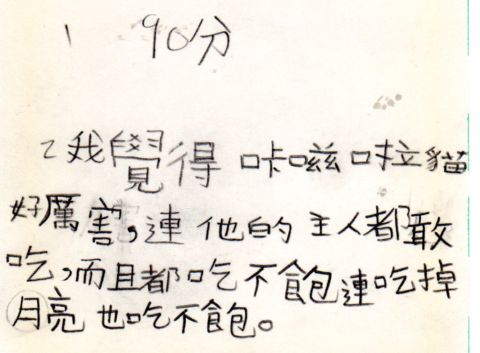 1 90分
2我覺得咔嗞啦貓
好厲害,連他的主人都敢
吃,而且都吃不飽連吃掉
月亮也吃不飽。